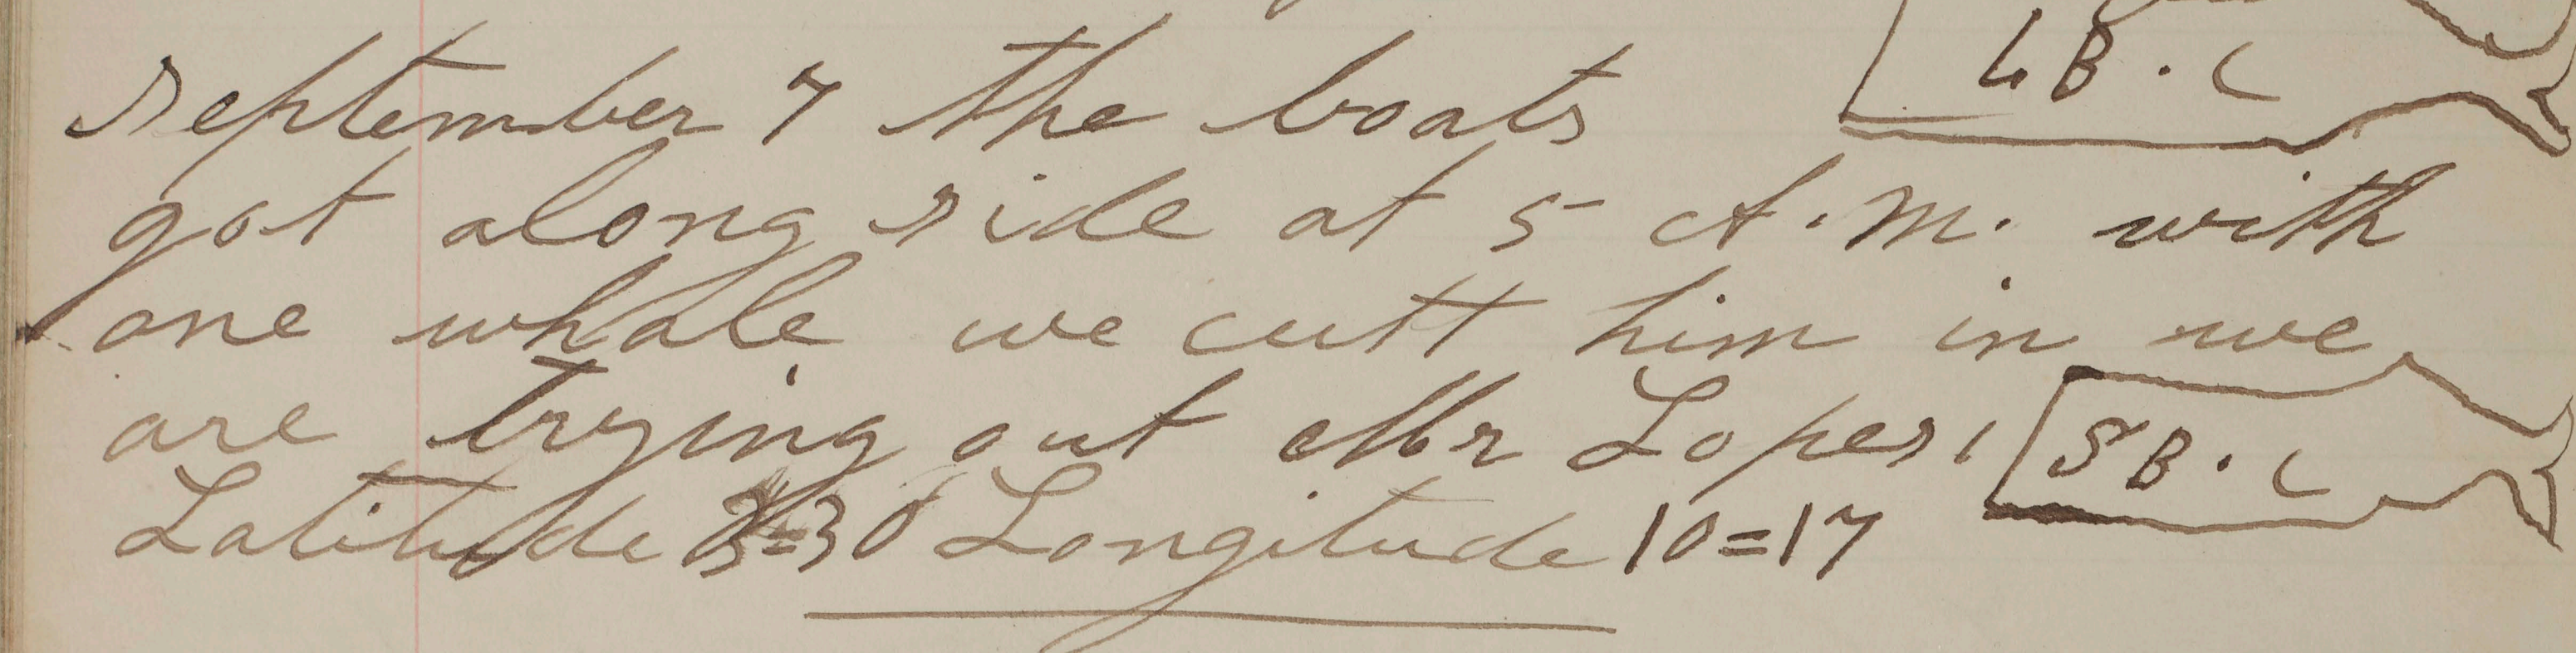 LB. C
September 7 the boats
got along side at 5 A.M. with
one whale we cutt him in we
are trying out Mr Lopes,
SB. C
Latitude 3=30 Longitude 10=17